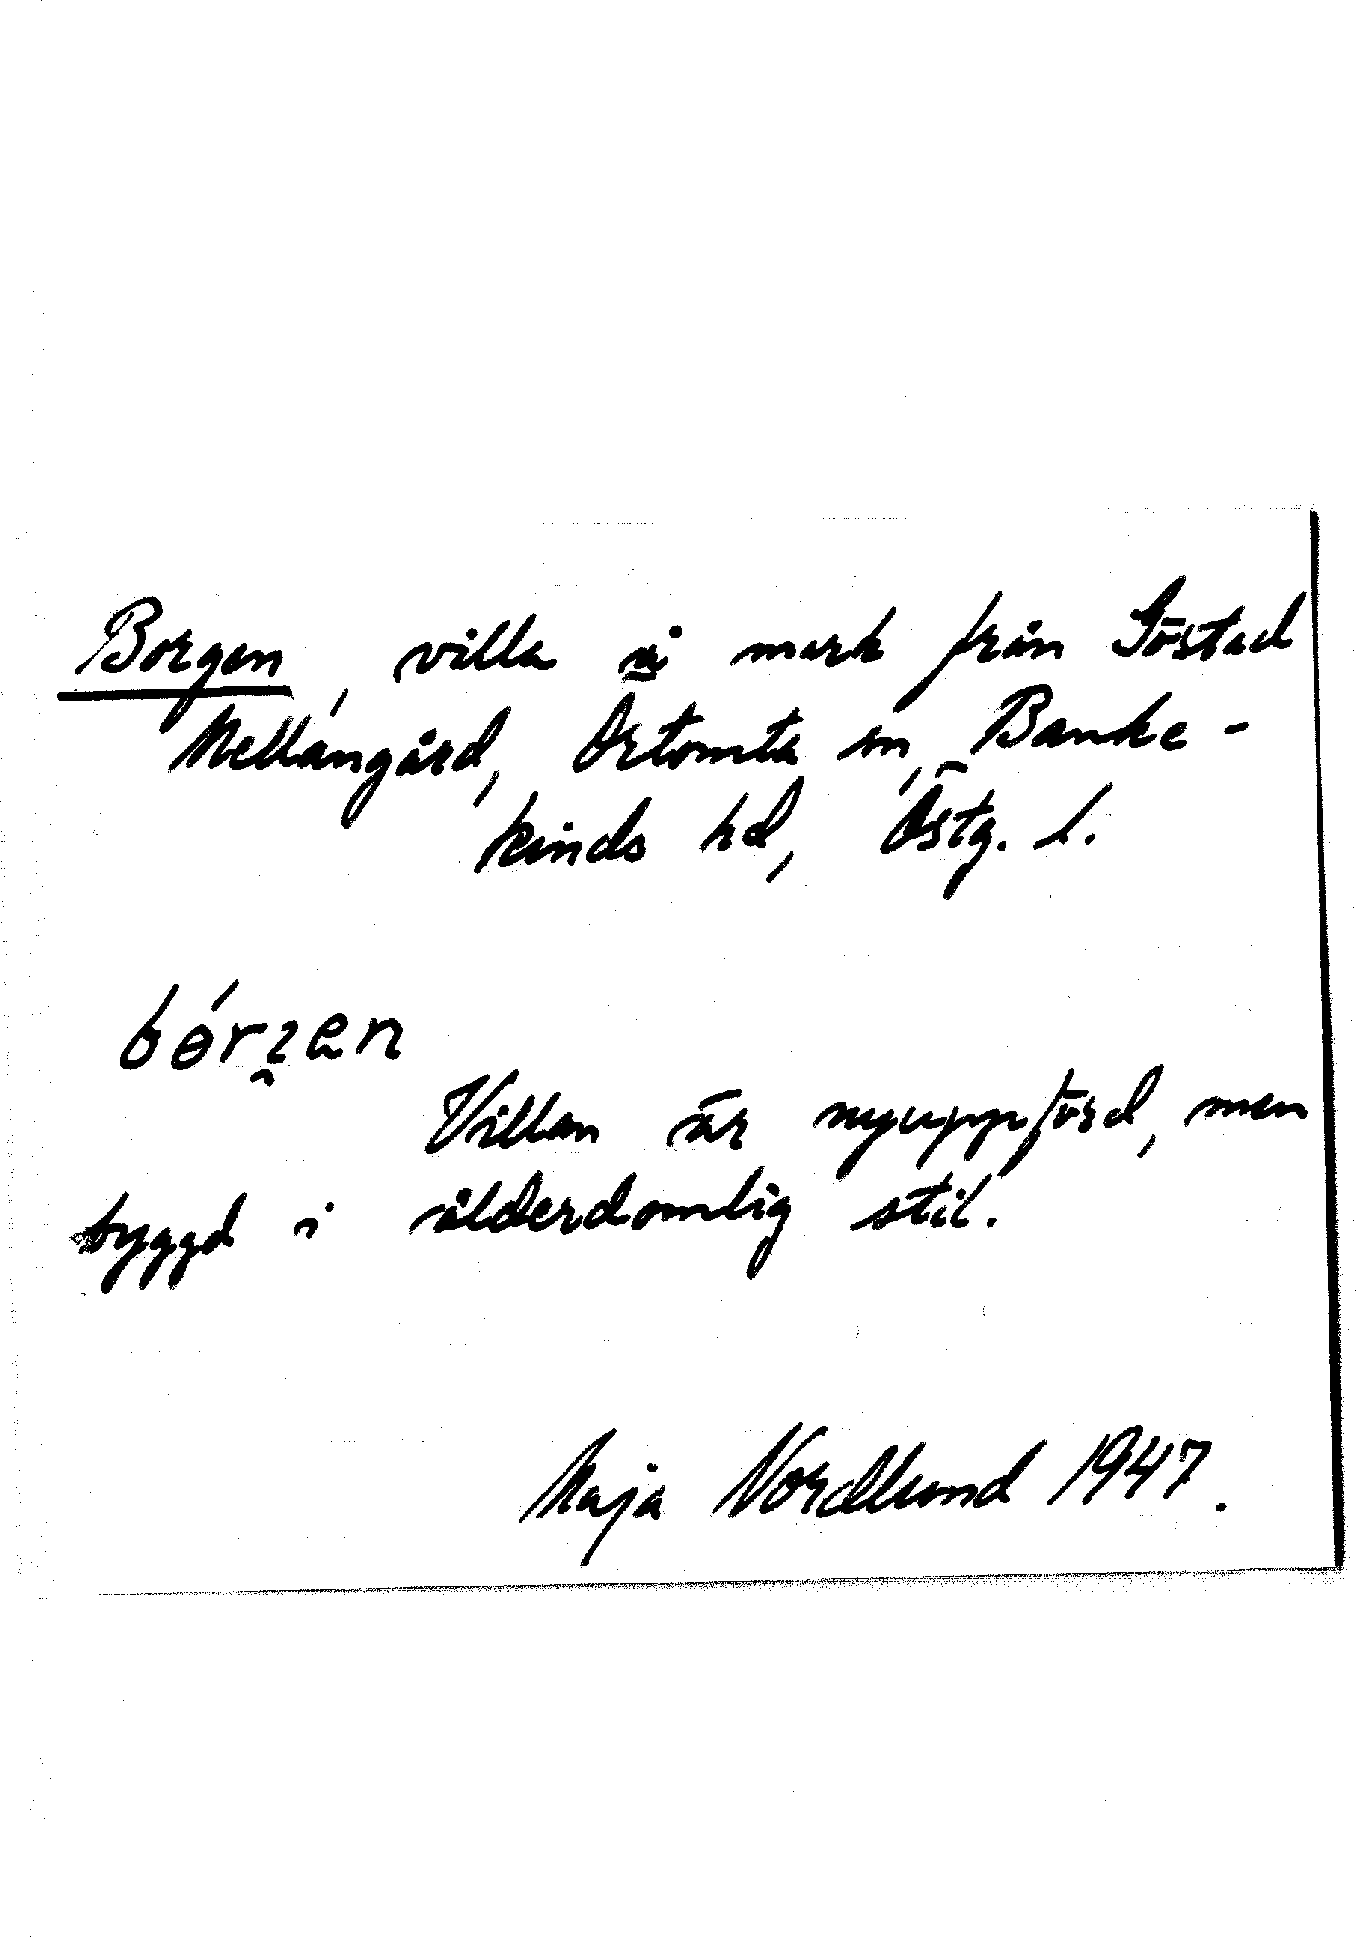 Borgen, villa å mark från Göstad
Mellangård, Örtomta sn, Banke-
kinds hd, Östg. l.
bórʒen
Villan är nyuppförd, men
byggd i ålderdomlig stil.
Maja Nordlund 1947.